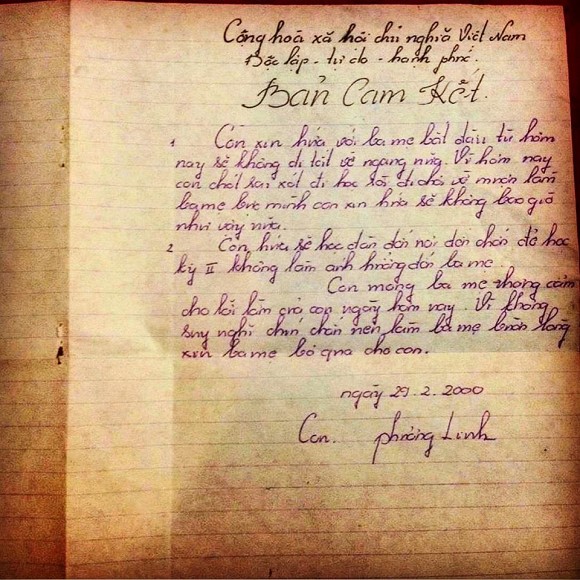 Cộng hoà xã hội chủ nghĩa Việt Nam
Độc lập - tự do - hạnh phúc.
Bản Cam Kết.
1 Con xin hứa với ba mẹ bắt đầu từ hôm
nay sẽ không đi tắt về ngang nữa. Vì hôm nay
con chót sai xót đi học rồi đi chơi về muộn làm
ba mẹ bực mình con xin hứa sẽ không bao giờ
như vậy nữa.
2 Con hứa sẽ học dần đời nọi đời chán để học
kỳ II không làm ảnh hưởng đới ba mẹ.
Con mong ba mẹ thông cảm
cho lỗi lầm của con ngày hôm nay. Vì không
suy nghĩ chín chắn nên làm ba mẹ buồn lòng
xin ba mẹ bỏ qua cho con.
ngày 29.2.2000
Con. phương Linh